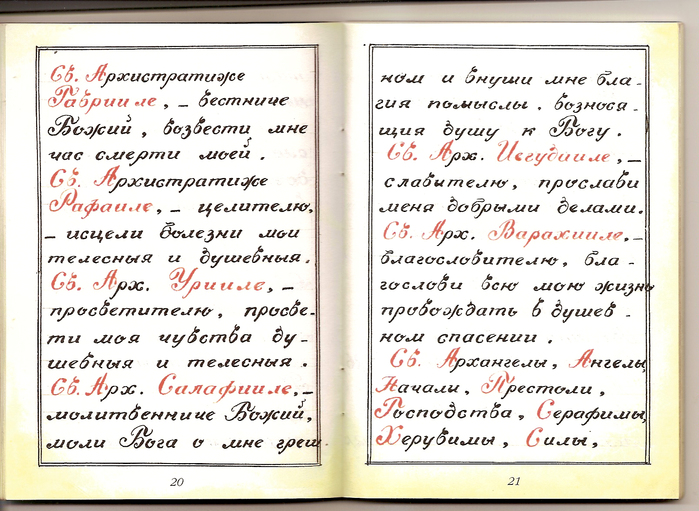 Св. Архистратиже
Гаврииле, – вестниче
Божий, возвести мне
час смерти моей.
Св. Архистратиже
Рафаиле, – целителю,
– исцели болезни мои
телесныя и душевныя.
Св. Арх. Урииле, –
просветителю, просве-
ти моя чувства ду-
шевныя и телесныя.
Св. Арх. Салафииле, –
молитвенниче Божий,
моли Бога о мне греш-
20
ном и внуши мне бла-
гия помыслы. вознося-
щия душу к Богу.
Св. Арх. Иегудииле, –
славителю, прослави
меня добрыми делами.
Св. Арх. Варахииле, –
благословителю, бла-
гослови всю мою жизнь
провождать в душев-
ном спасении.
Св. Архангелы, Ангелы,
Начали, Престоли,
Господства, Серафимы,
Херувимы, Силы,
21